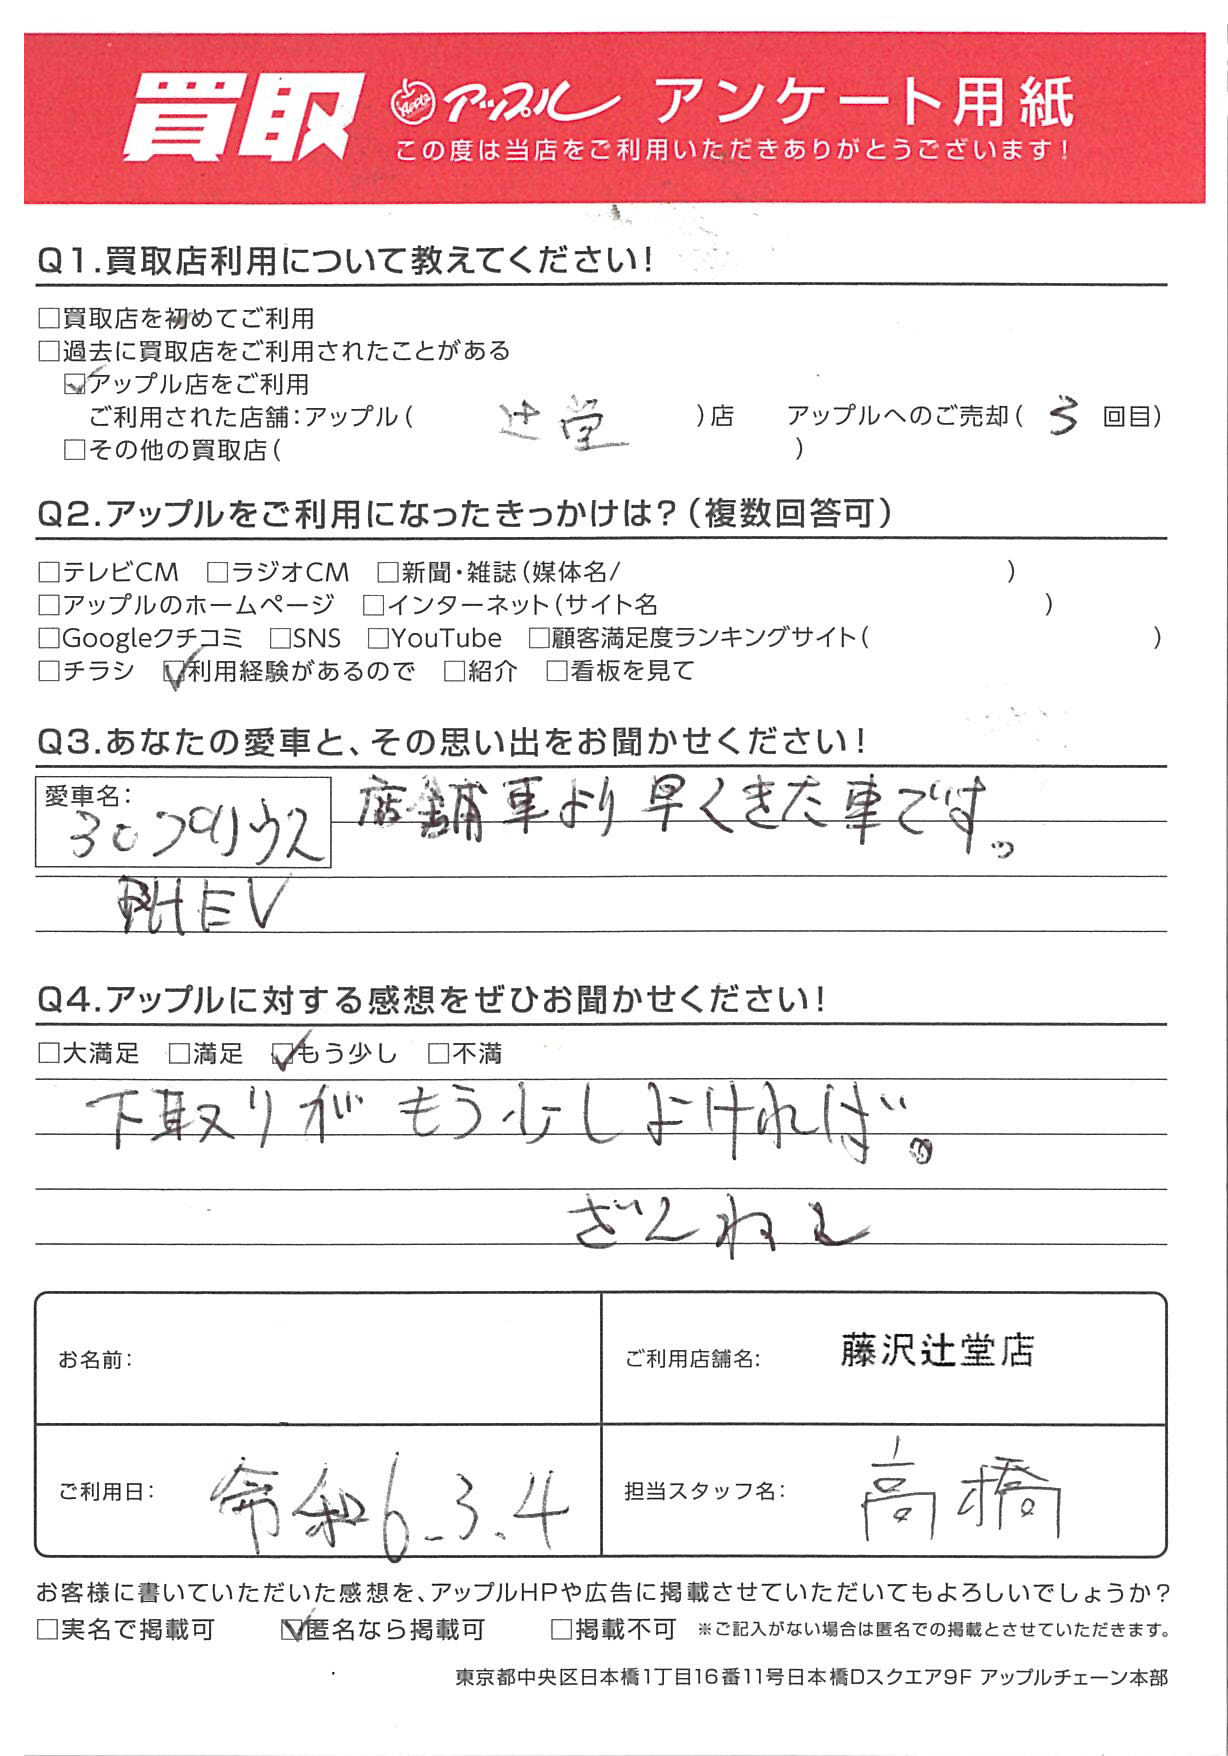 買取 Apple アップル アンケート用紙
この度は当店をご利用いただきありがとうございます！
Q1.買取店利用について教えてください！
□買取店を初めてご利用
□過去に買取店をご利用されたことがある
☑アップル店をご利用
ご利用された店舗：アップル（ 辻堂 ）店 アップルへのご売却（ 3 回目）
□その他の買取店（ ）
Q2.アップルをご利用になったきっかけは？（複数回答可）
□テレビCM □ラジオCM □新聞・雑誌（媒体名/ ）
□アップルのホームページ □インターネット（サイト名 ）
□Googleクチコミ □SNS □YouTube □顧客満足度ランキングサイト（ ）
□チラシ ☑利用経験があるので □紹介 □看板を見て
Q3.あなたの愛車と、その思い出をお聞かせください！
愛車名：
30プリウス 店舗車より早くきた車です。
PHEV
Q4.アップルに対する感想をぜひお聞かせください！
□大満足 □満足 ☑もう少し □不満
下取りがもう少しよければ。
ざんねん
お名前： ご利用店舗名: 藤沢辻堂店
ご利用日： 令和6.3.4 担当スタッフ名： 高橋
お客様に書いていただいた感想を、アップルHPや広告に掲載させていただいてもよろしいでしょうか？
□実名で掲載可 ☑匿名なら掲載可 □掲載不可 ※ご記入がない場合は匿名での掲載とさせていただきます。
東京都中央区日本橋1丁目16番11号日本橋Dスクエア9F アップルチェーン本部